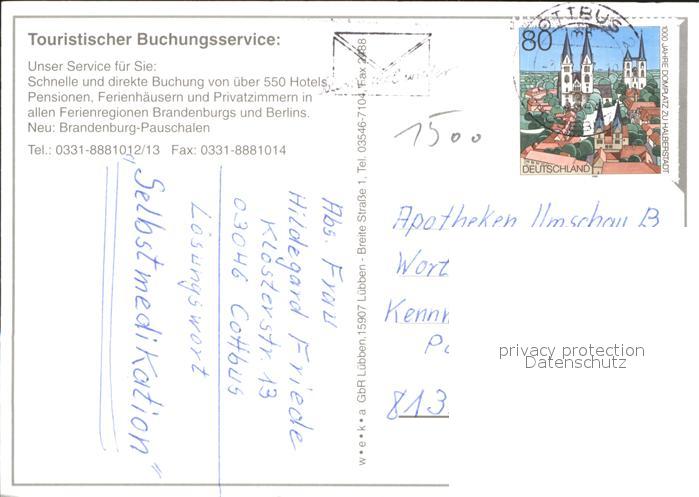 Touristischer Buchungsservice:
Unser Service für Sie:
Schnelle und direkte Buchung von über 550 Hotels,
Pensionen, Ferienhäusern und Privatzimmern in
allen Ferienregionen Brandenburgs und Berlins.
Neu: Brandenburg-Pauschalen
Tel.: 0331-8881012/13 Fax: 0331-8881014
Abs. Frau
Hildegard Friede
Klosterstr. 13
03046 Cottbus
Lösungswort
„Selbstmedikation"
w•e•k•a GbR Lübben, 15907 Lübben - Breite Straße 1, Tel. 03546-7104, Fax 2988
COTTBUS
80
1000 JAHRE DOMPLATZ ZU HALBERSTADT
DEUTSCHLAND
1500
Apotheken Umschau B
Wort
Kenn
813
privacy protection
Datenschutz